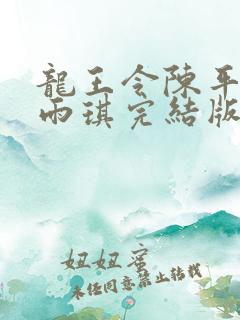 龍王令陳平
雨琪完結版
妞妞蜜
未经同意禁止转载